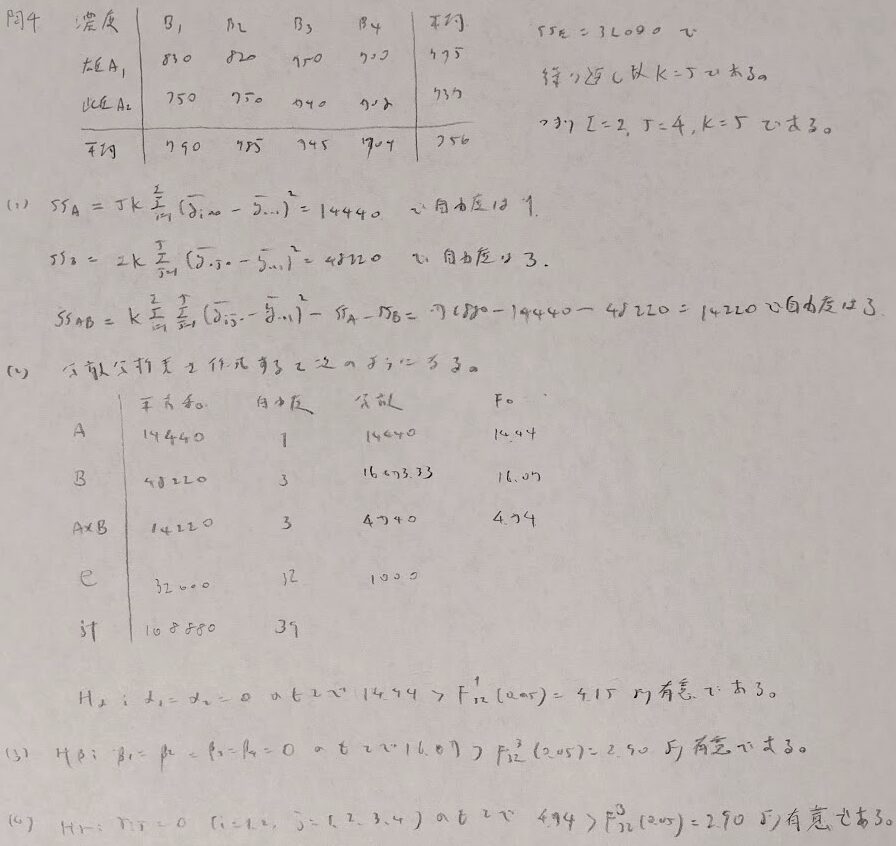 問4 濃度 B₁ B₂ B₃ B₄ 平均
雄A₁ 830 820 750 700 775
雌A₂ 750 750 740 708 737
平均 790 785 745 704 756
SSE = 32000 で
繰り返し数 K=5である。
つまり I=2, J=4, K=5 である。
(1) SS_A = JK Σ_{i=1}^{2} (ȳ_{i..} - ȳ_{...})² = 14440 で自由度は 1.
SS_B = IK Σ_{j=1}^{J} (ȳ_{.j.} - ȳ_{...})² = 48220 で 自由度は 3.
SS_AB = K Σ_{i=1}^{2} Σ_{j=1}^{J} (ȳ_{ij.} - ȳ_{...})² - SS_A - SS_B = 76880 - 14440 - 48220 = 14220 で自由度は 3
(2) 分散分析表を作成すると次のようになる。
平方和 自由度 分散 F₀
A 14440 1 14440 14.44
B 48220 3 16073.33 16.07
A×B 14220 3 4740 4.74
e 32000 32 1000
計 108880 39
H_α : α₁ = α₂ = 0 のもとで 14.44 > F¹₃₂(0.05) = 4.15 より有意である。
(3) H_β : β₁ = β₂ = β₃ = β₄ = 0 のもとで 16.07 > F³₃₂(0.05) = 2.90 より有意である。
(4) H_γ : γ_{ij} = 0 (i=1,2, j=1,2,3,4) のもとで 4.74 > F³₃₂(0.05) = 2.90 より有意である。